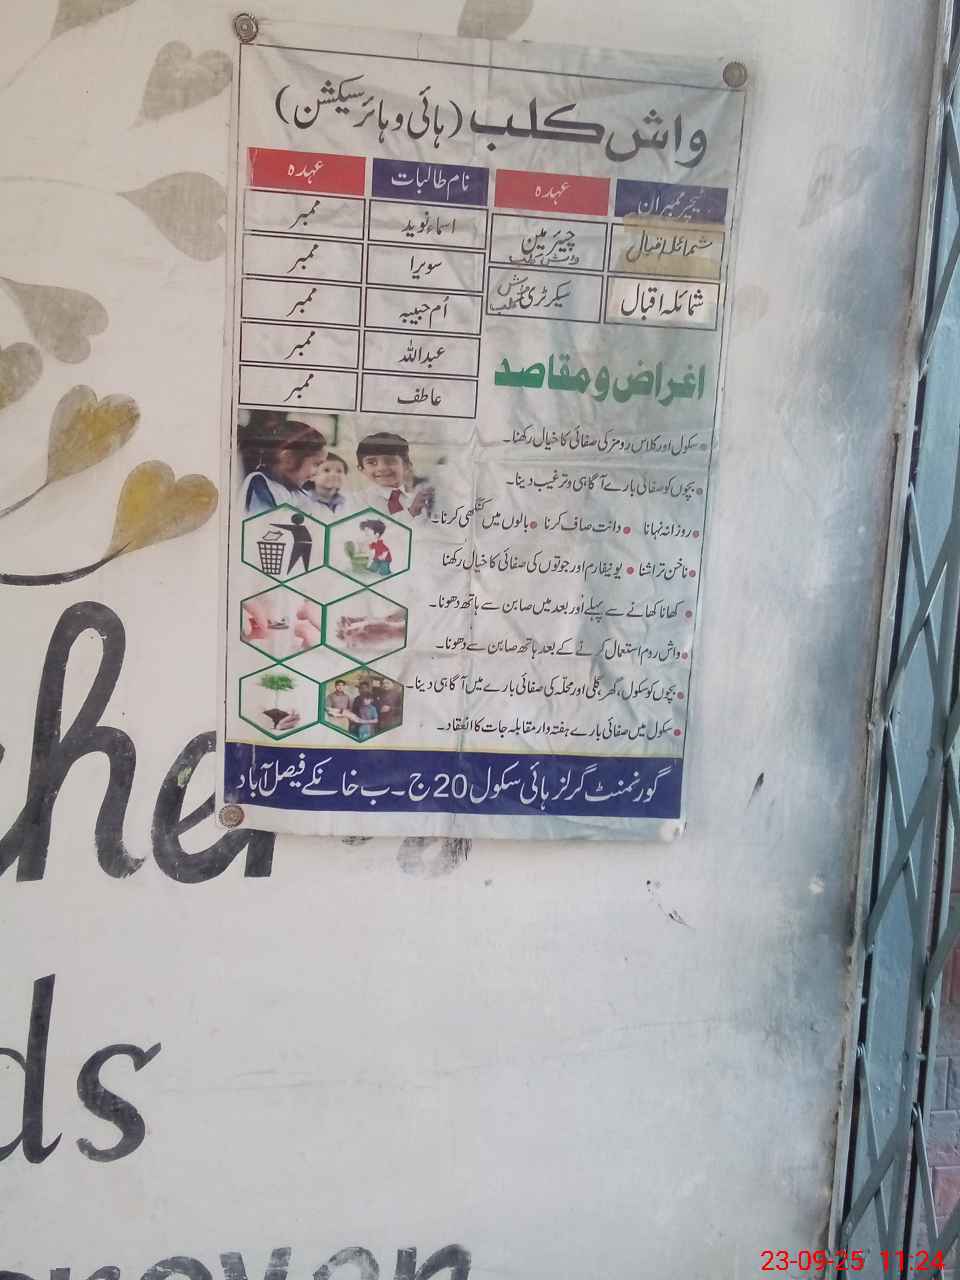 واش کلب (ہائی وہائر سیکشن)
ٹیچر ممبران عہدہ نام طالبات عہدہ
شمائلہ اقبال چیئرمین واش کلب اسماء نوید ممبر
شمائلہ اقبال سیکرٹری واش کلب سویرا ممبر
اُم حبیبہ ممبر
عبداللہ ممبر
عاطف ممبر
اغراض و مقاصد
• سکول اور کلاس رومز کی صفائی کا خیال رکھنا۔
• بچوں کو صفائی بارے آگاہی و ترغیب دینا۔
• روزانہ نہانا • دانت صاف کرنا • بالوں میں کنگھی کرنا۔
• ناخن تراشنا • یونیفارم اور جوتوں کی صفائی کا خیال رکھنا
• کھانا کھانے سے پہلے اور بعد میں صابن سے ہاتھ دھونا۔
• واش روم استعمال کرنے کے بعد ہاتھ صابن سے دھونا۔
• بچوں کو سکول، گھر، گلی اور محلّہ کی صفائی بارے میں آگاہی دینا۔
• سکول میں صفائی بارے ہفتہ وار مقابلہ جات کا انعقاد۔
گورنمنٹ گرلز ہائی سکول 20 ج۔ب خانکے فیصل آباد
her
ds
23-09-25 11:24